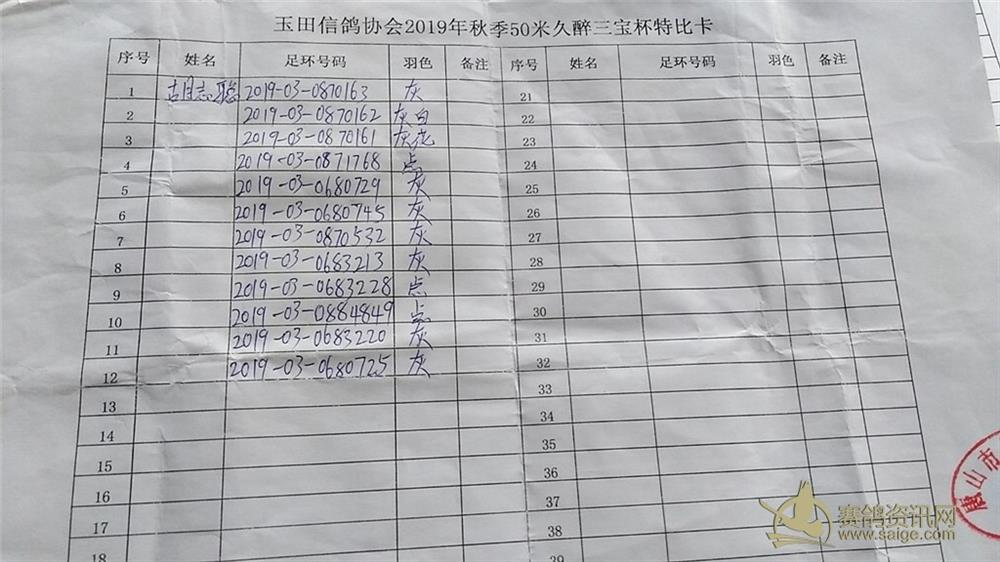 玉田信鸽协会2019年秋季50米久醉三宝杯特比卡
序号 姓名 足环号码 羽色 备注 序号 姓名 足环号码 羽色 备注
1 胡志聪 2019-03-0870163 灰 21
2 2019-03-0870162 灰白 22
3 2019-03-0870161 灰花 23
4 2019-03-0871768 点 24
5 2019-03-0680729 灰 25
6 2019-03-0680745 灰 26
7 2019-03-0870532 灰 27
8 2019-03-0683213 灰 28
9 2019-03-0683228 点 29
10 2019-03-0884849 点 30
11 2019-03-0683220 灰 31
12 2019-03-0680725 灰 32
13 33
14 34
15 35
16 36
17 37
18 38
39
唐山市
赛鸽资讯网
www.saige.com